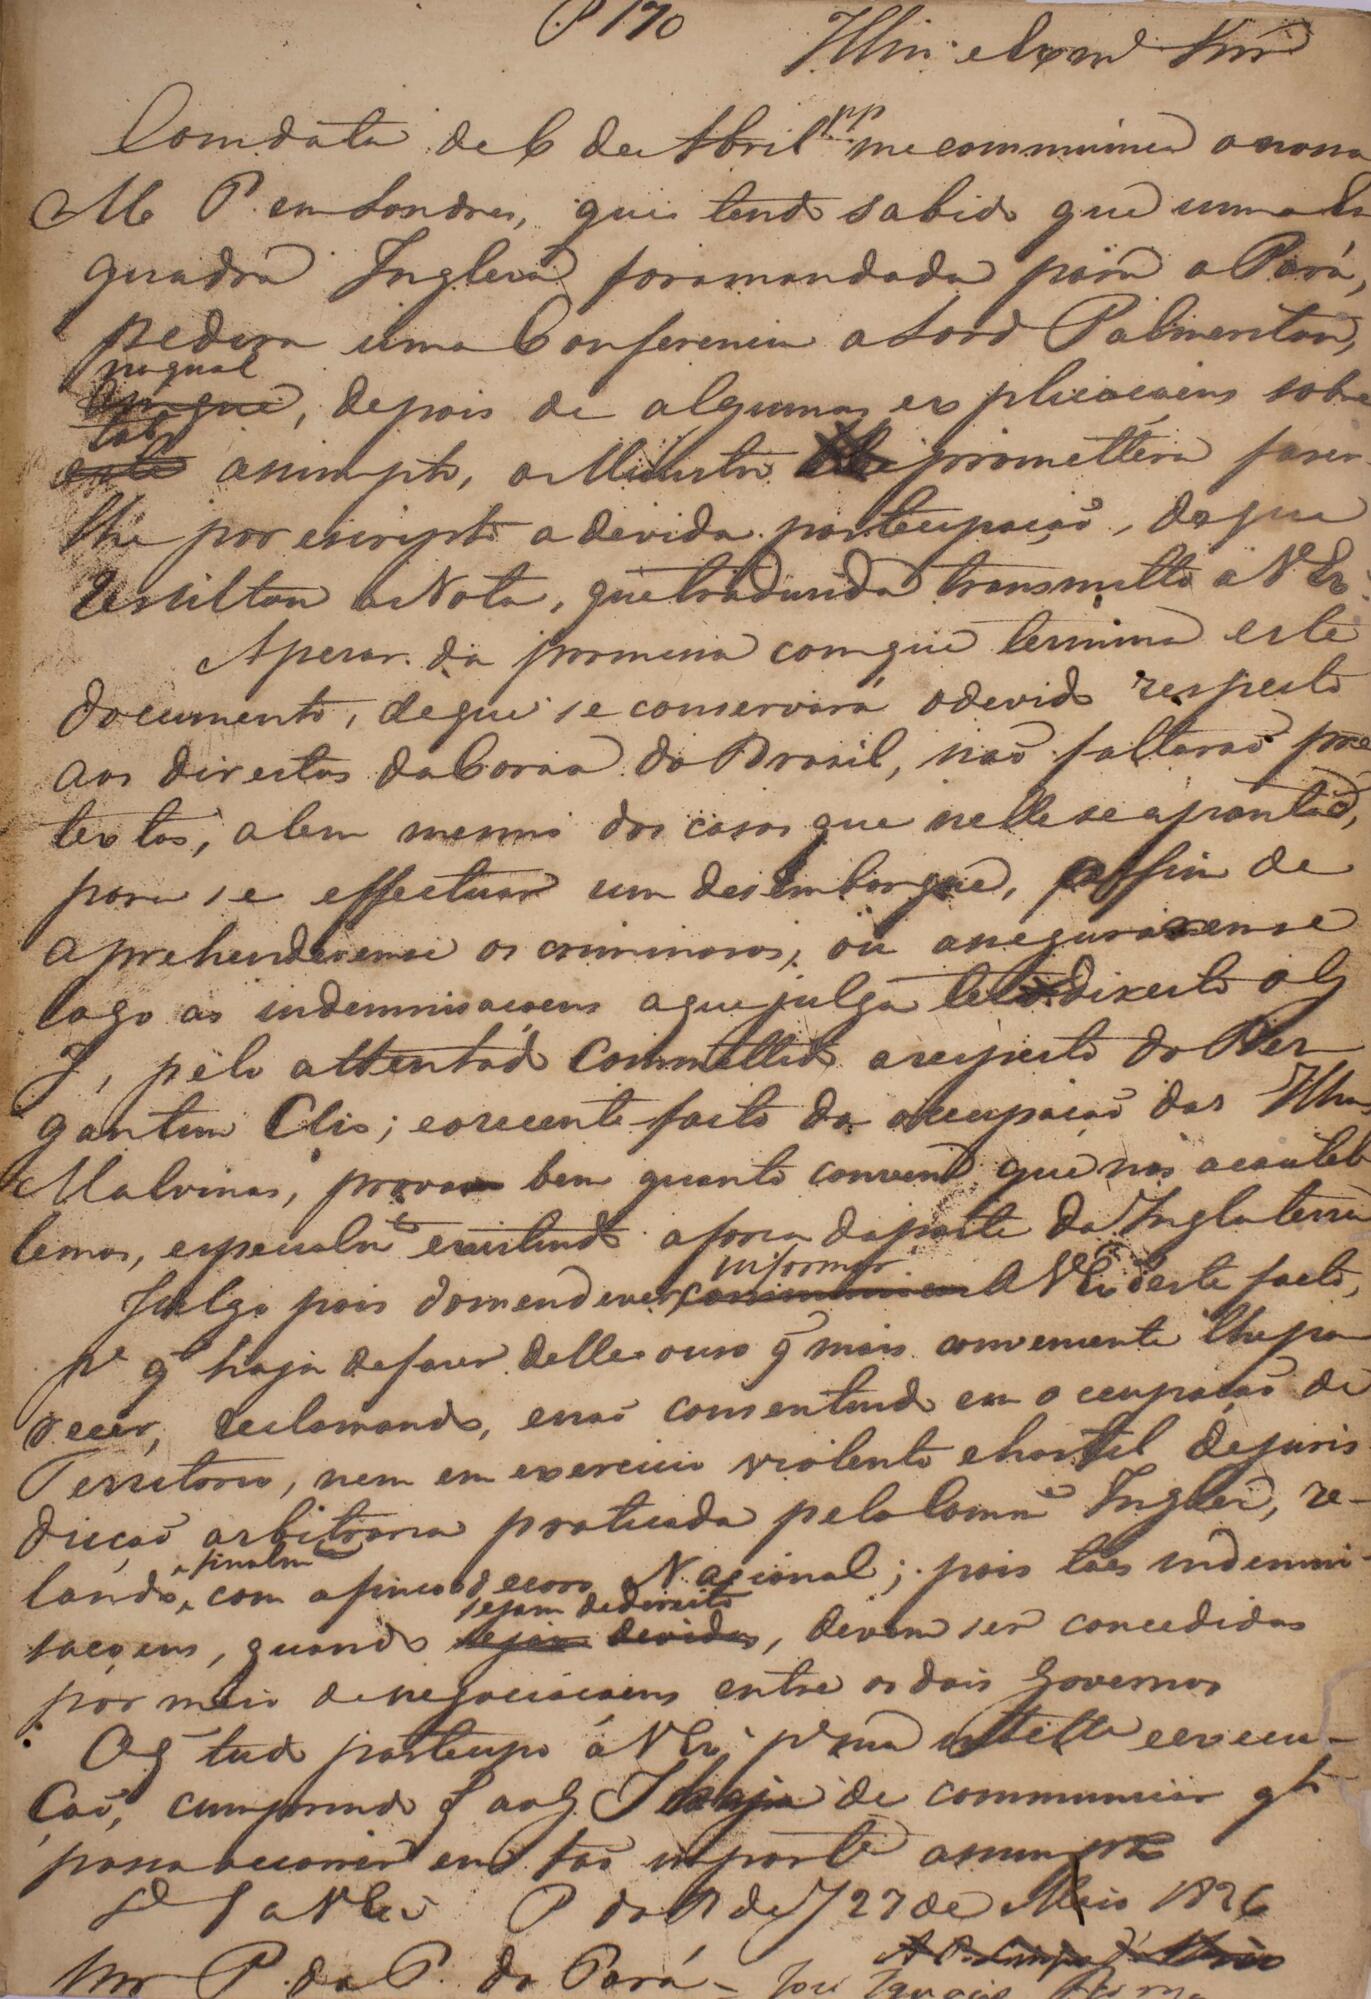 P 170
Illm. e Exmo Snr
Com data de 6 de Abril pp me communica o nosso
M P. em Londres, que tendo sabido que uma Es
quadra Inglesa fora mandada para o Pará,
pedira uma Conferencia a Lord Palmerston,
na qual
em que, depois de algumas explicacoens sobre
tal
este assumpto, o Ministro promettêra faser
lhe por escripto a devida participação, de que
resultou a Nota, que tradusida transmitto a V Ex.
Apesar da promessa com que termina este
documento, de que se conservará o devido respeito
aos direitos da Coroa do Brasil, não faltarão pre
textos, alem mesmo dos casos que nelle se apontão,
para se effectuar um desembarque, afim de
aprehenderemse os criminosos, ou asseguraremse
logo as indemnisacoens a que julga ter direito o G
I, pelo attentado commettido a respeito do Ber
gantim Clio; e o recente facto da occupação das Ilhas
Malvinas, provão bem quanto convem que nos acaute
lemos, especialmte existindo a força da parte da Inglaterra
informar
Julgo pois do meu dever communicar a V Ex este facto,
pa q haja de faser delle o uso q mais conveniente lhe pa
recer, reclamando, e não consentindo em occupação de
Territorio, nem em exercicio violento e hostil de juris
dicção arbitraria praticada pelo Comme Inglez, ze-
finalmte
lando, com afinco o decoro Nacional; pois taes indemni
sejam de direito
sacoens, quando sejão devidas, devem ser concedidas
por meio de negociacoens entre os dois Governos
O q tudo participo á V Ex pa sua intella e execu-
ção, cumprindo q ao G. I haja de communicar qto
possa occorrer em tão importe assumpto
De G a V Ex P do R de J 27 de Maio 1836
Snr P. da P. do Pará - José Ignacio